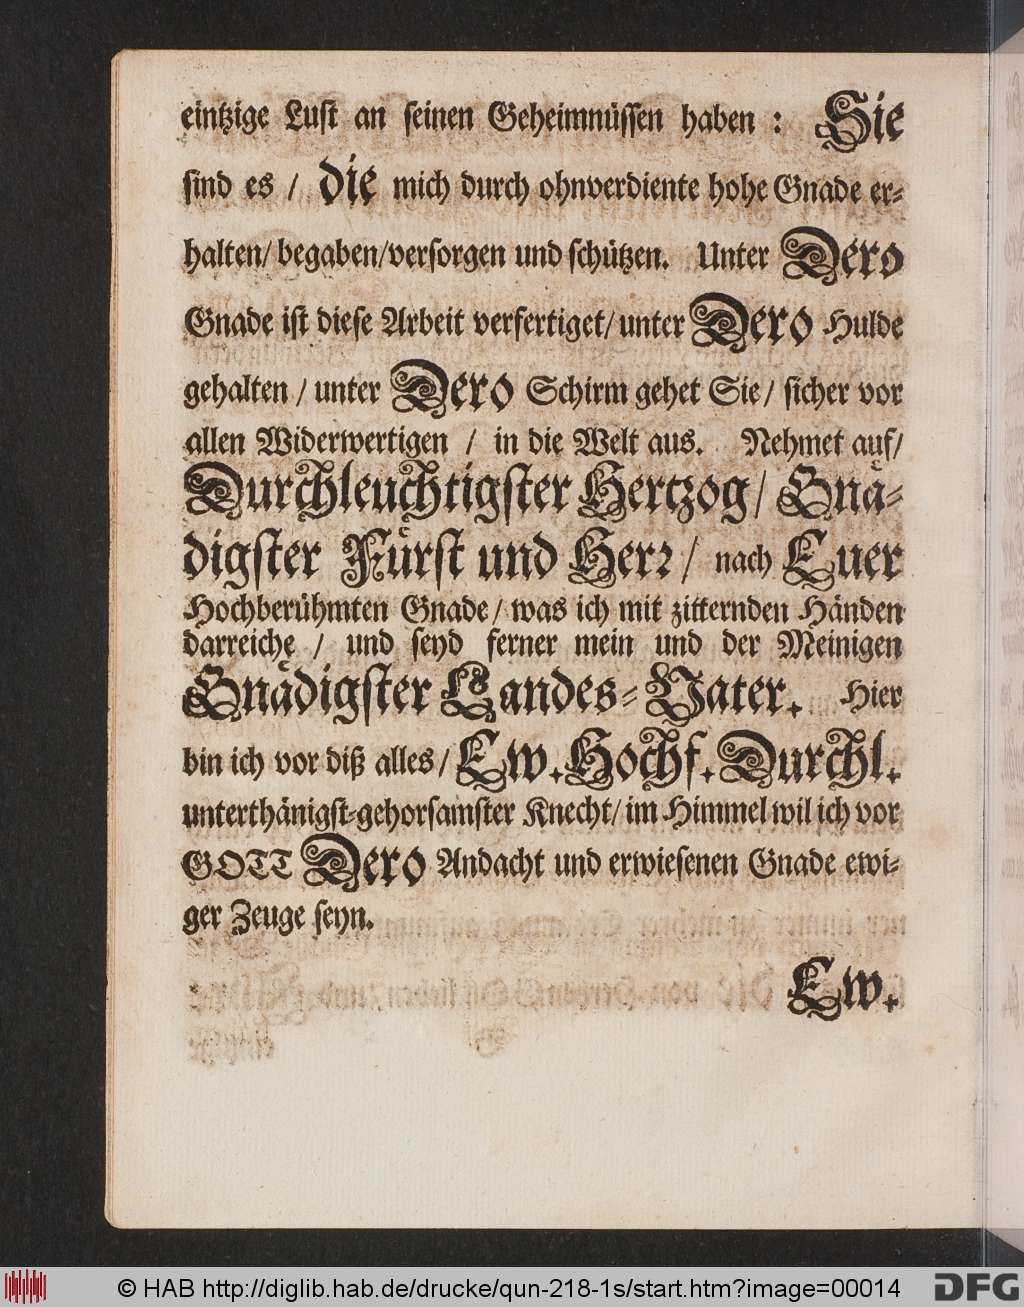 eintzige Luſt an ſeinen Geheimnüſſen haben : Sie
ſind es / die mich durch ohnverdiente hohe Gnade er-
halten/ begaben/verſorgen und ſchützen. Unter Dero
Gnade iſt dieſe Arbeit verfertiget/ unter Dero Hulde
gehalten / unter Dero Schirm gehet Sie/ ſicher vor
allen Widerwertigen / in die Welt aus. Nehmet auf/
Durchleuchtigſter Hertzog/ Gnä-
digſter Fürſt und Herꝛ/ nach Euer
Hochberühmten Gnade/ was ich mit zitternden Händen
darreiche / und ſeyd ferner mein und der Meinigen
Gnädigſter Landes-Vater. Hier
bin ich vor diß alles/ Ew. Hochf. Durchl.
unterthänigſt-gehorſamſter Knecht/ im Himmel wil ich vor
GOTT Dero Andacht und erwieſenen Gnade ewi-
ger Zeuge ſeyn.
Ew.
© HAB http://diglib.hab.de/drucke/qun-218-1s/start.htm?image=00014
DFG